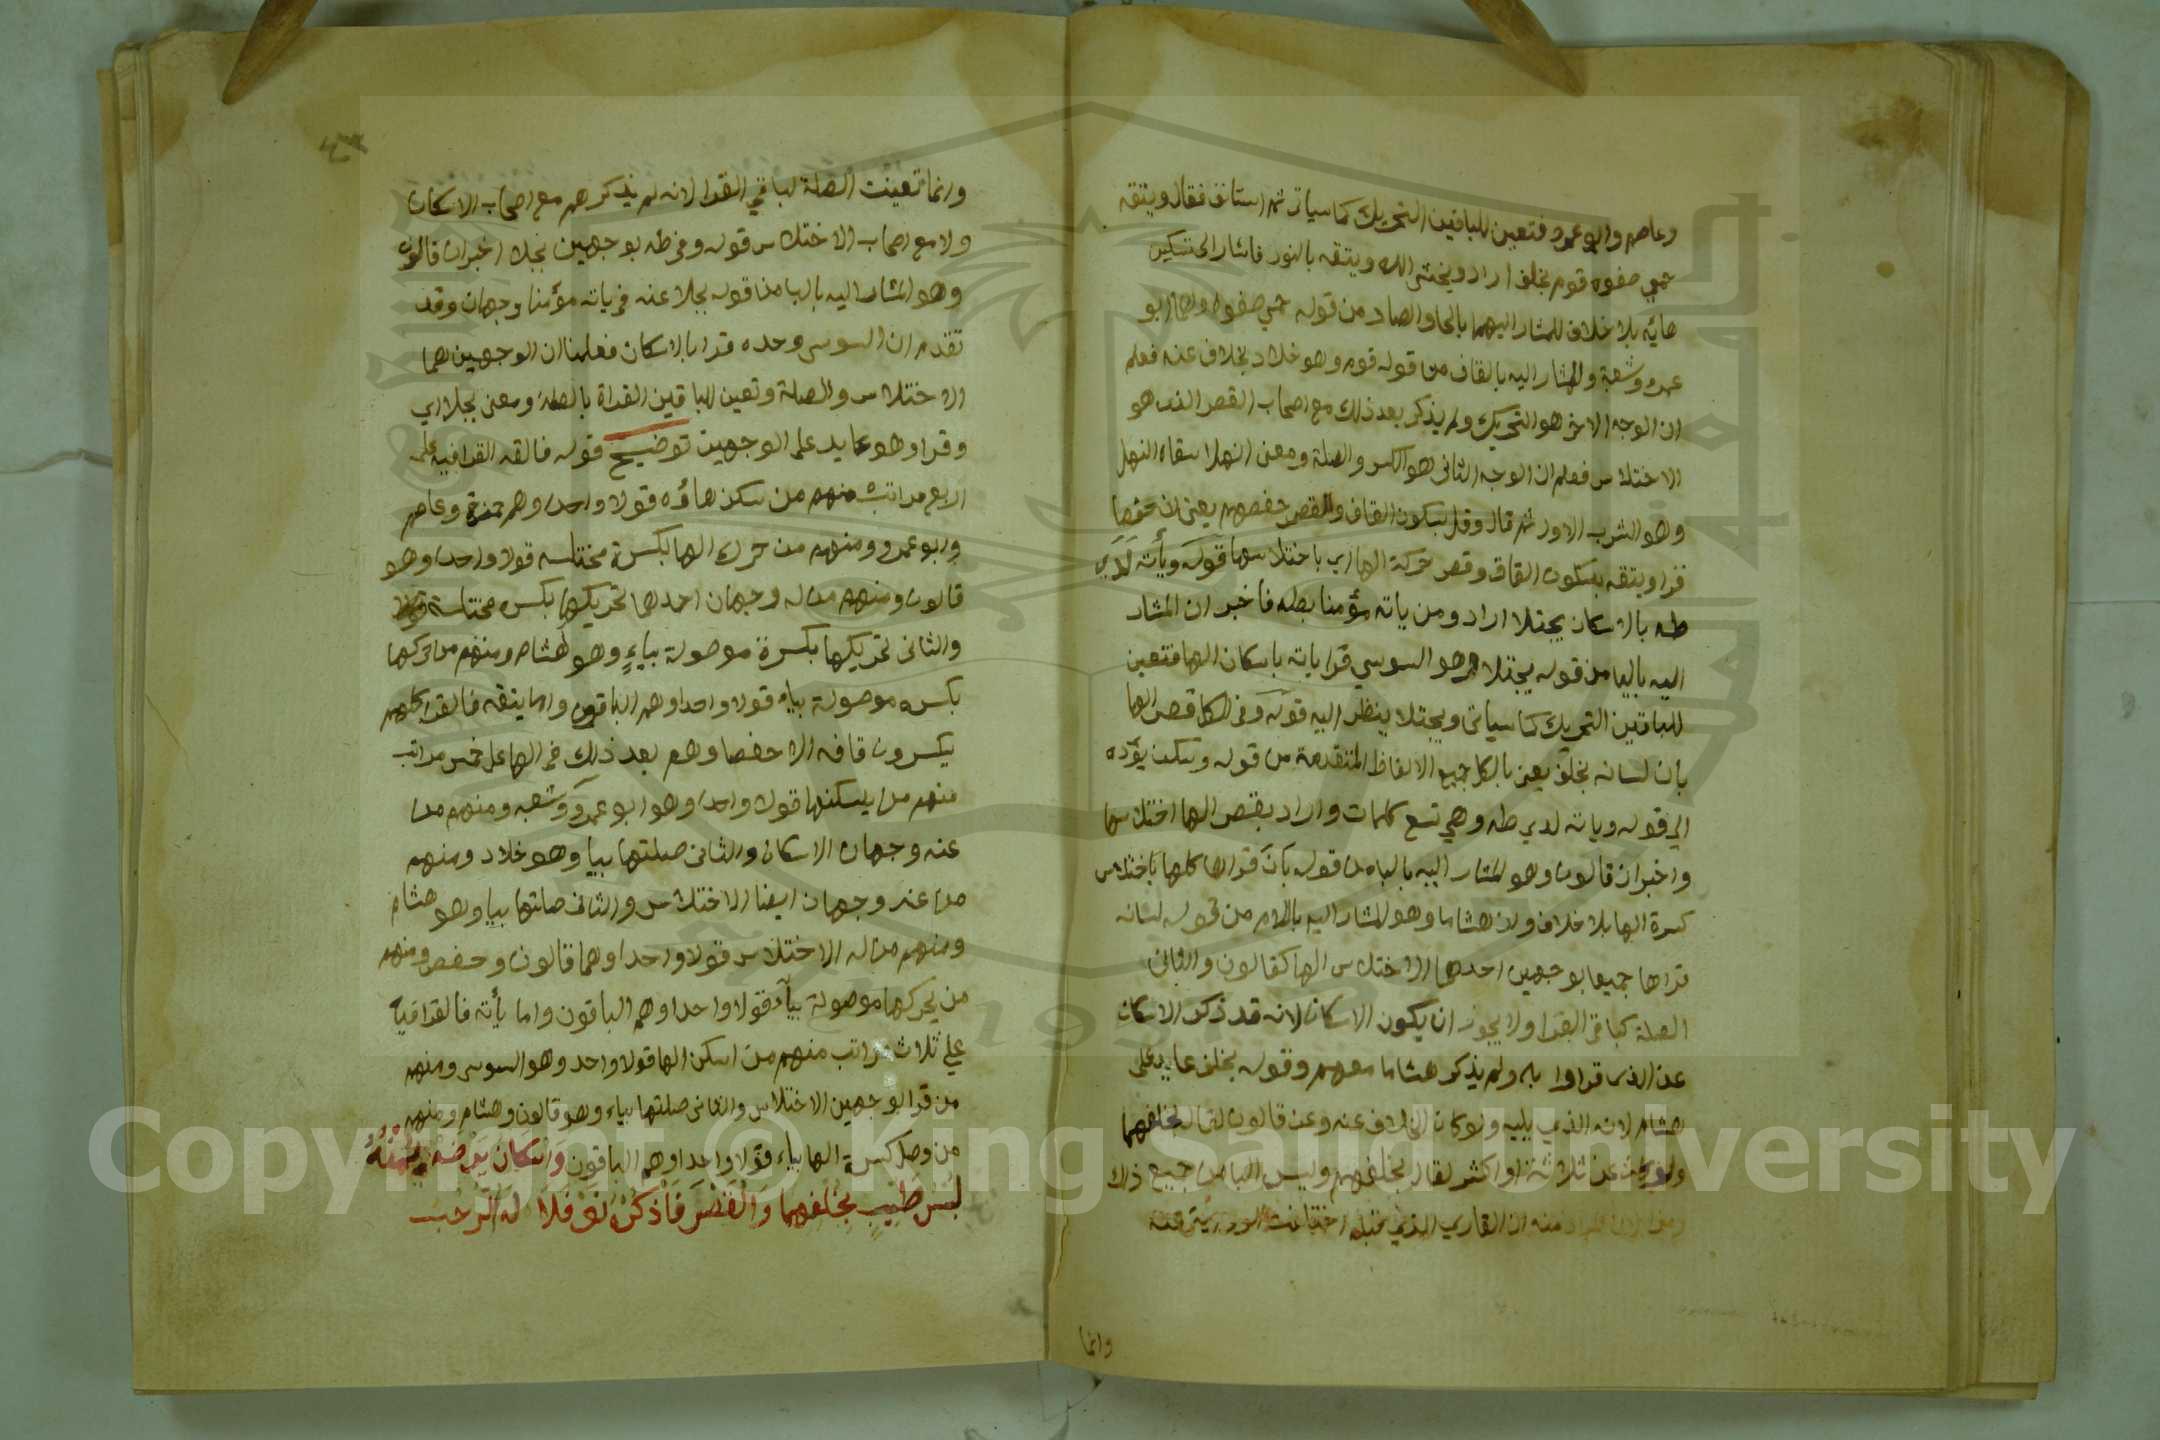 وعاصم وابو عمرو فتعين للباقين التحريك كما سياتي ثم استانف فقال ويتقه
حمي صفوه قوم بخلف اراد ويخش الله ويتقه بالنور فاشار الى تسكين
هائه بلا خلاف للمشار اليهما بالحا والصاد من قوله حمي صفوه وهما ابو
عمرو وشعبة والمشار اليه بالقاف من قوله قوم وهو خلاد بخلاف عنه فعلم
ان الوجه الاخر هو التحريك ولم يذكر بعد ذلك مع اصحاب القصر الذي هو
الاختلاس فعلم ان الوجه الثاني هو الكسر والصلة ومعنى انهلا سقاه النهل
وهو الشرب الاول ثم قال وقل بسكون القاف والقصر حفصهم يعني ان حفصا
قرا ويتقه بسكون القاف وقصر حركة الها اي باختلاسها قوله ويأته لدى
طه بالاسكان يجتلا اراد ومن ياته مؤمنا بطه فأخبر ان المشار
اليه باليا من قوله يجتلا وهو السوسي قرا ياته باسكان الها فتعين
للباقين التحريك كما سياتي ويجتلا ينظر اليه قوله وفي الكل قصر الها
بان لسانه بخلف يعني بالكل جميع الالفاظ المتقدمة من قوله وسكن يؤده
الى قوله وياته لدى طه وهي تسع كلمات واراد بقصر الها اختلاسها
واخبر ان قالون وهو المشار اليه بالباء من قوله بان قراها كلها باختلاس
كسرة الها بلا خلاف وان هشاما وهو المشار اليه باللام من قوله لسانه
قراها جميعا بوجهين احدهما الاختلاس الها كقالون والثاني
الصلة كباقي القرا ولا يجوز ان يكون الاسكان لانه قد ذكر الاسكان
عن الذين قراوا به ولم يذكر هشاما معهم وقوله بخلف عايد على
هشام لانه الذي يليه ولو كان الخلاف عنه وعن قالون لقال بخلفهما
ولو كان عن ثلاثة او اكثر لقال بخلفهم وليس الها من جميع ذلك
منه ان القاري الذي قبله
وانما
٤٣
وانما تعينت الصلة لباقي القرا لانه لم يذكرهم مع اصحاب الاسكان
ولا مع اصحاب الاختلاس قوله وفي طه بوجهين بجلا اخبر ان قالون
وهو المشار اليه بالبا من قوله بجلا عنه في ياته مؤمنا وجهان وقد
تقدم ان السوسي وحده قرا بالاسكان فعلمنا ان الوجهين هما
الاختلاس والصلة وتعين للباقين القراة بالصلة ومعنى بجلا اي
وقرا وهو عايد على الوجهين توضيح قوله فالقه القرا فيه على
اربع مراتب منهم من سكن هاؤه قولا واحدا وهم حمزة وعاصم
وابو عمرو ومنهم من حرك الها بكسرة مختلسه قولا واحدا وهو
قالون ومنهم من له وجهان احدهما تحريكها بكسره مختلسة
والثاني تحريكها بكسرة موصولة بياء وهو هشام ومنهم من حركها
بكسره موصولة بياء قولا واحدا وهم الباقون واما يتقه فالقرا كلهم
يكسرون قافه الا حفصا وهم بعد ذلك في الها على خمس مراتب
منهم من يسكنها قولا واحدا وهو ابو عمرو وشعبه ومنهم من
عنه وجهان الاسكان والثاني صلتها بيا وهو خلاد ومنهم
من عنه وجهان ايضا الاختلاس والثاني صلتها بيا وهو هشام
ومنهم من له الاختلاس قولا واحدا وهما قالون وحفص ومنهم
من يحركها موصولة بيآء قولا واحدا وهم الباقون واما يأته فالقرا فيه
على ثلاث مراتب منهم من اسكن الها قولا واحد وهو السوسي ومنهم
من قرا بوجهين الاختلاس والثاني صلتها بياء وهو قالون وهشام ومنهم
من وصل كسرة الها بياء قولا واحدا وهم الباقون وَاسْكَانُ يَرْضَهُ يُمْنُهُ
لُبْسُ طَيِّبٍ بِخُلْفِهِمَا وَالْقَصْرَ فَاذْكُرْهُ نَوْفَلَا لَهُ الرُّحْبُ
Copyright © King Saud University